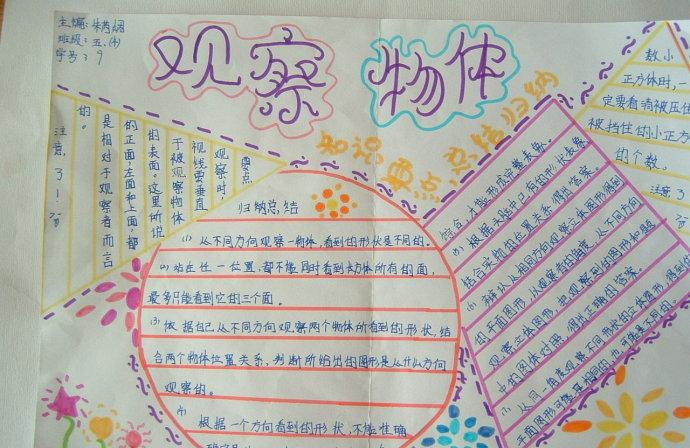 主编：朱芮烟
班级：五、(4)
学号：9
观察物体
知识要点总结归纳
要点
观察时，
视线要垂直
于被观察物体
的表面。这里所说
的正面，左面和上面，都
是相对于观察者而言
的。
注意，了！
归纳总，结
(1) 从不同方向观察一物体，看到的形状是不同的。
(2) 站在任一位置，都不能同时看到长方体所有的面，
最多只能看到它的三个面。
(3) 根据自己从不同方向观察两个物体所看到的形状，结
合两个物体位置关系，判断所给出的图形是从什么方向
观察的。
(4) 根据一个方向看到的形状，不能准确
综合，才能形成完整表象。
(5) 根据实验中已有的形状表象，
结合实物的位置关系，得出答案
(6) 辨认从相同方向观察立体图形得到
的平面图形，从观察者的角度，从不同方向
观察立体图形，把观察到的图形和题
中的图体对照，得出正确的答案。
(7) 从同一角度观察不同形状的立体图形，得到的
平面图形可能是相同的，也可能是不同的。
数小
正方体时，一
定要看清被压住
被挡住的小正方
的个数。
注意了